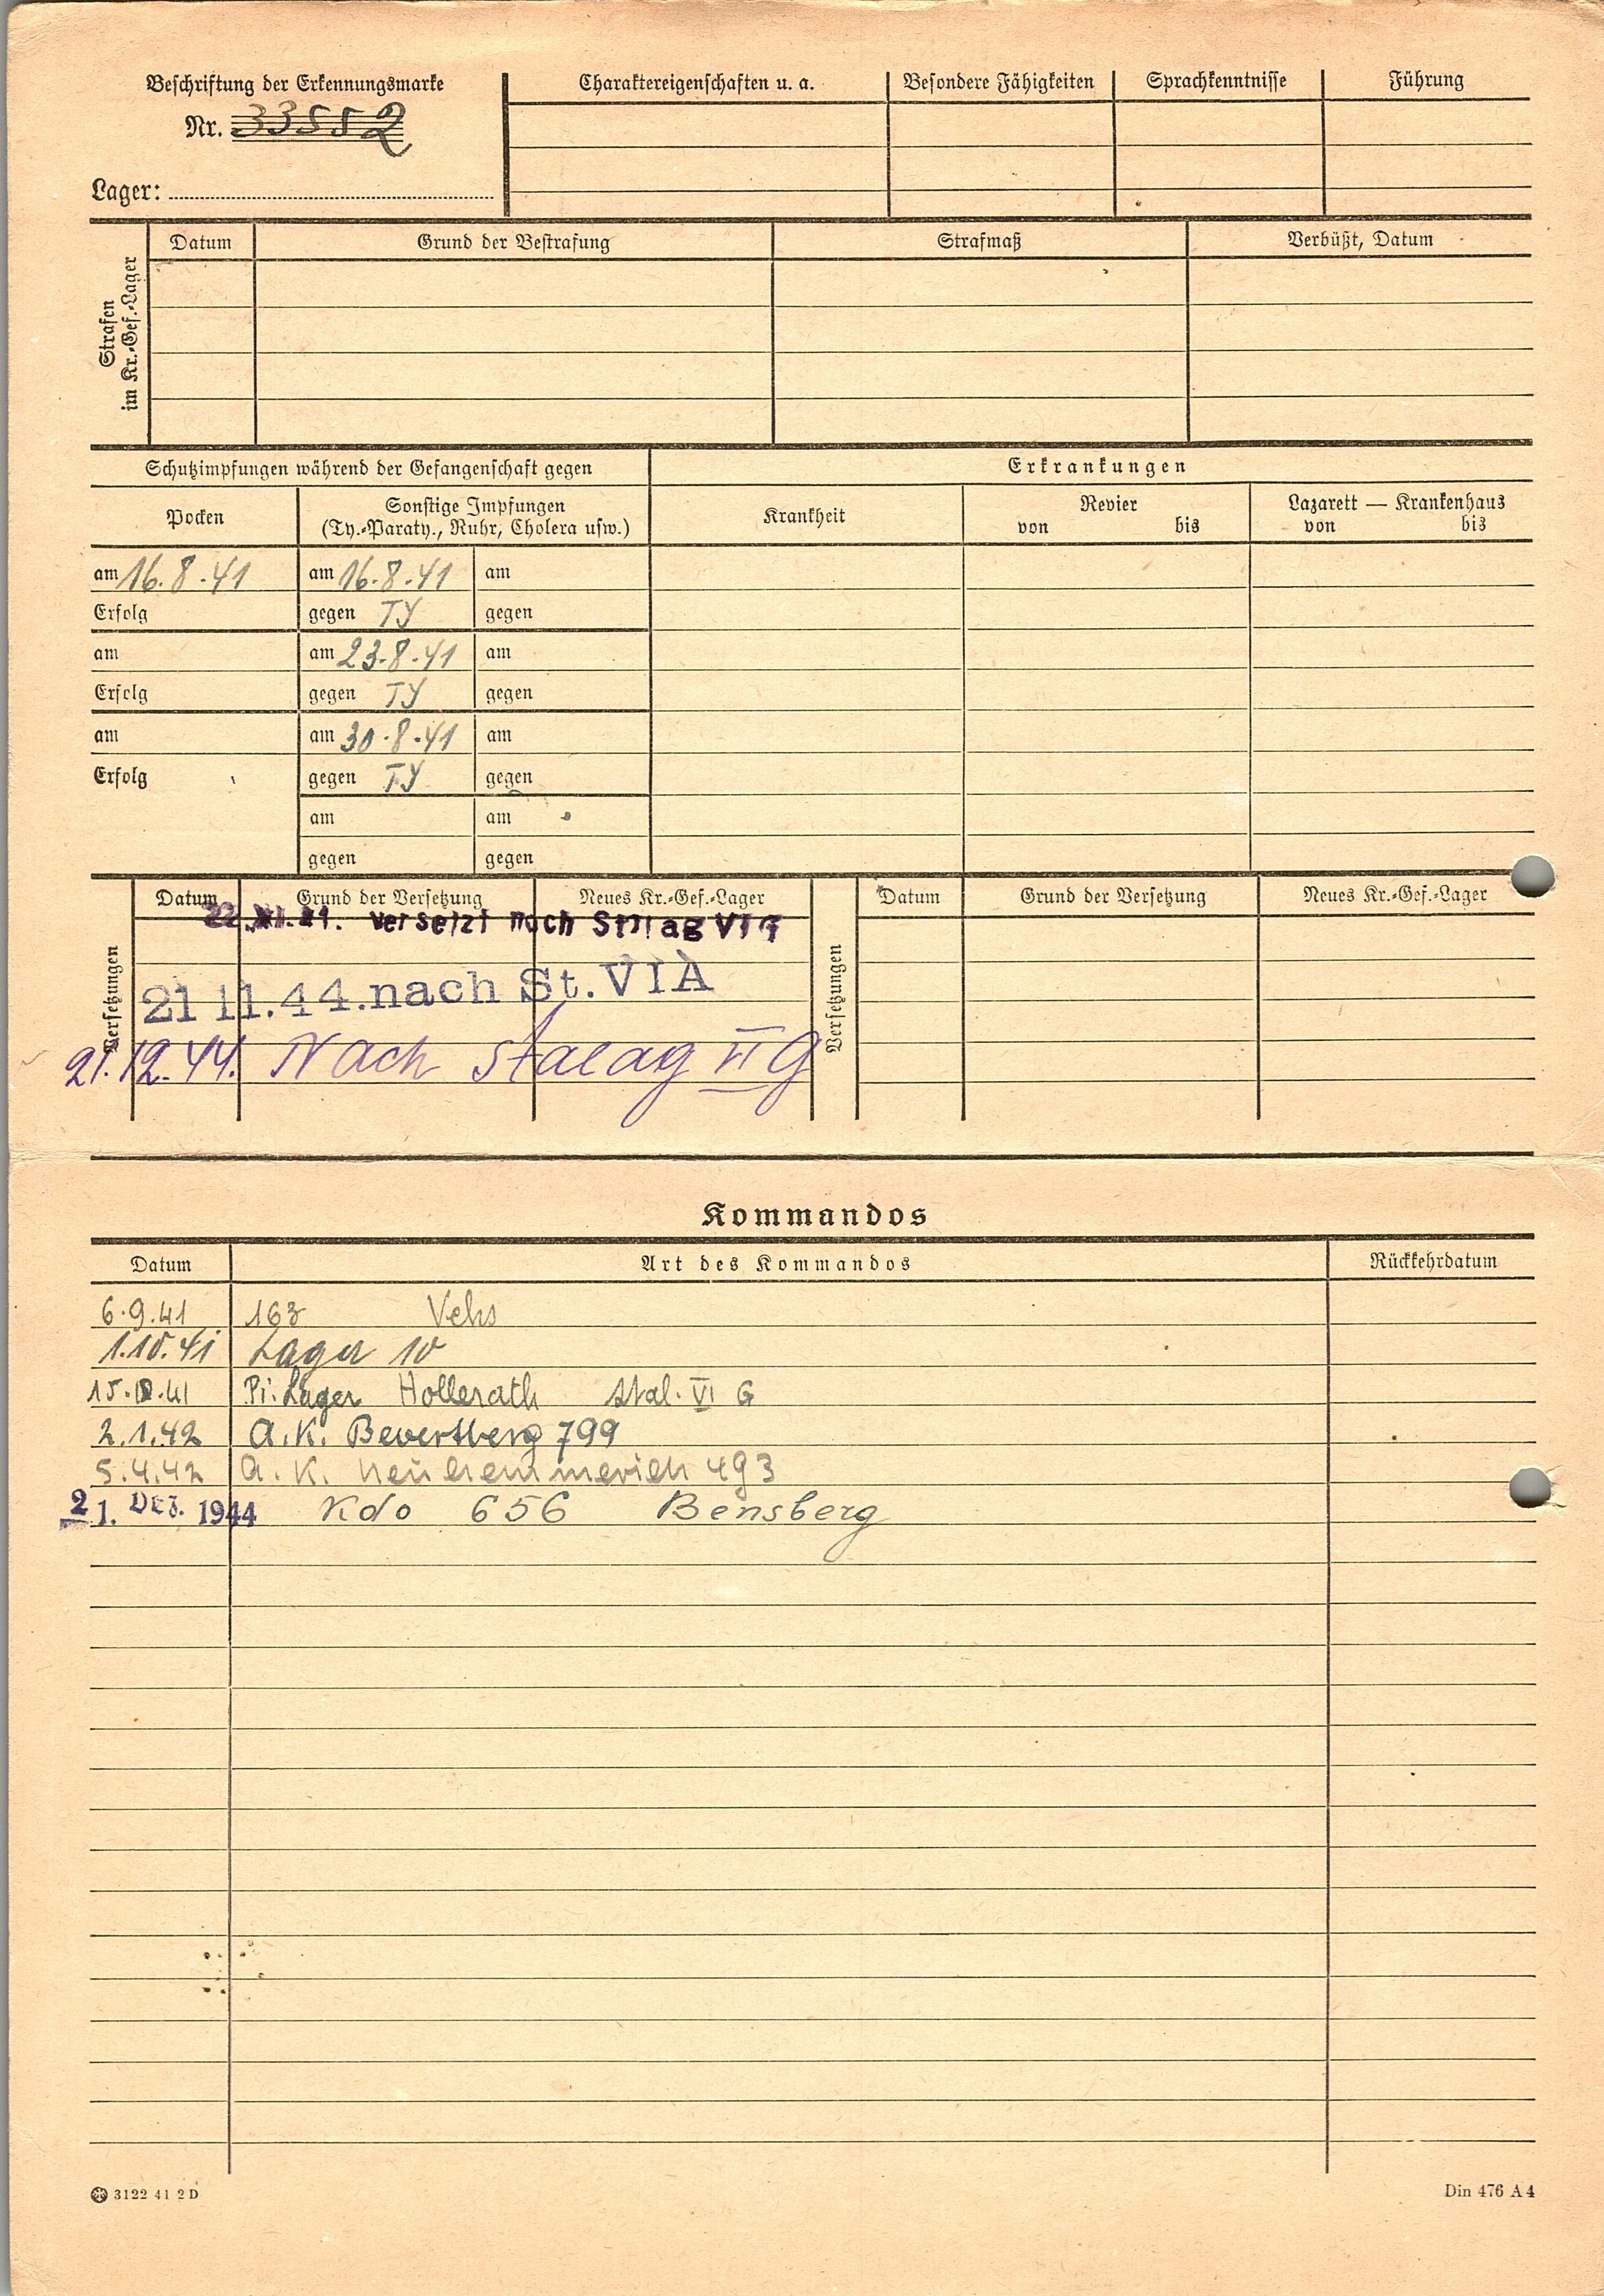 Beschriftung der Erkennungsmarke
Nr. 33552
Lager:
Charaktereigenschaften u. a.
Besondere Fähigkeiten
Sprachkenntnisse
Führung
Strafen
im Kr.-Gef.-Lager
Datum
Grund der Bestrafung
Strafmaß
Verbüßt, Datum
Schutzimpfungen während der Gefangenschaft gegen
Erkrankungen
Pocken
Sonstige Impfungen
(Ty.-Paraty., Ruhr, Cholera usw.)
Krankheit
Revier
von bis
Lazarett — Krankenhaus
von bis
am 16.8.41 am 16.8.41 am
Erfolg gegen TY gegen
am am 23.8.41 am
Erfolg gegen TY gegen
am am 30.8.41 am
Erfolg gegen TY gegen
am am
gegen gegen
Versetzungen
Datum Grund der Versetzung Neues Kr.-Gef.-Lager
versetzt nach Stalag VI G
21 11.44. nach St. VIA
21.12.44. Nach Stalag VI G
Versetzungen
Datum Grund der Versetzung Neues Kr.-Gef.-Lager
Kommandos
Datum Art des Kommandos Rückkehrdatum
6.9.41 163
1.10.41 Lager 10
Pi. Lager Hollerath Stal. VI G
2.1.42 A.K. 799
5.4.42 A.K. 493
21. DEZ. 1944 Kdo 656 Bensberg
3122 41 2 D
Din 476 A 4